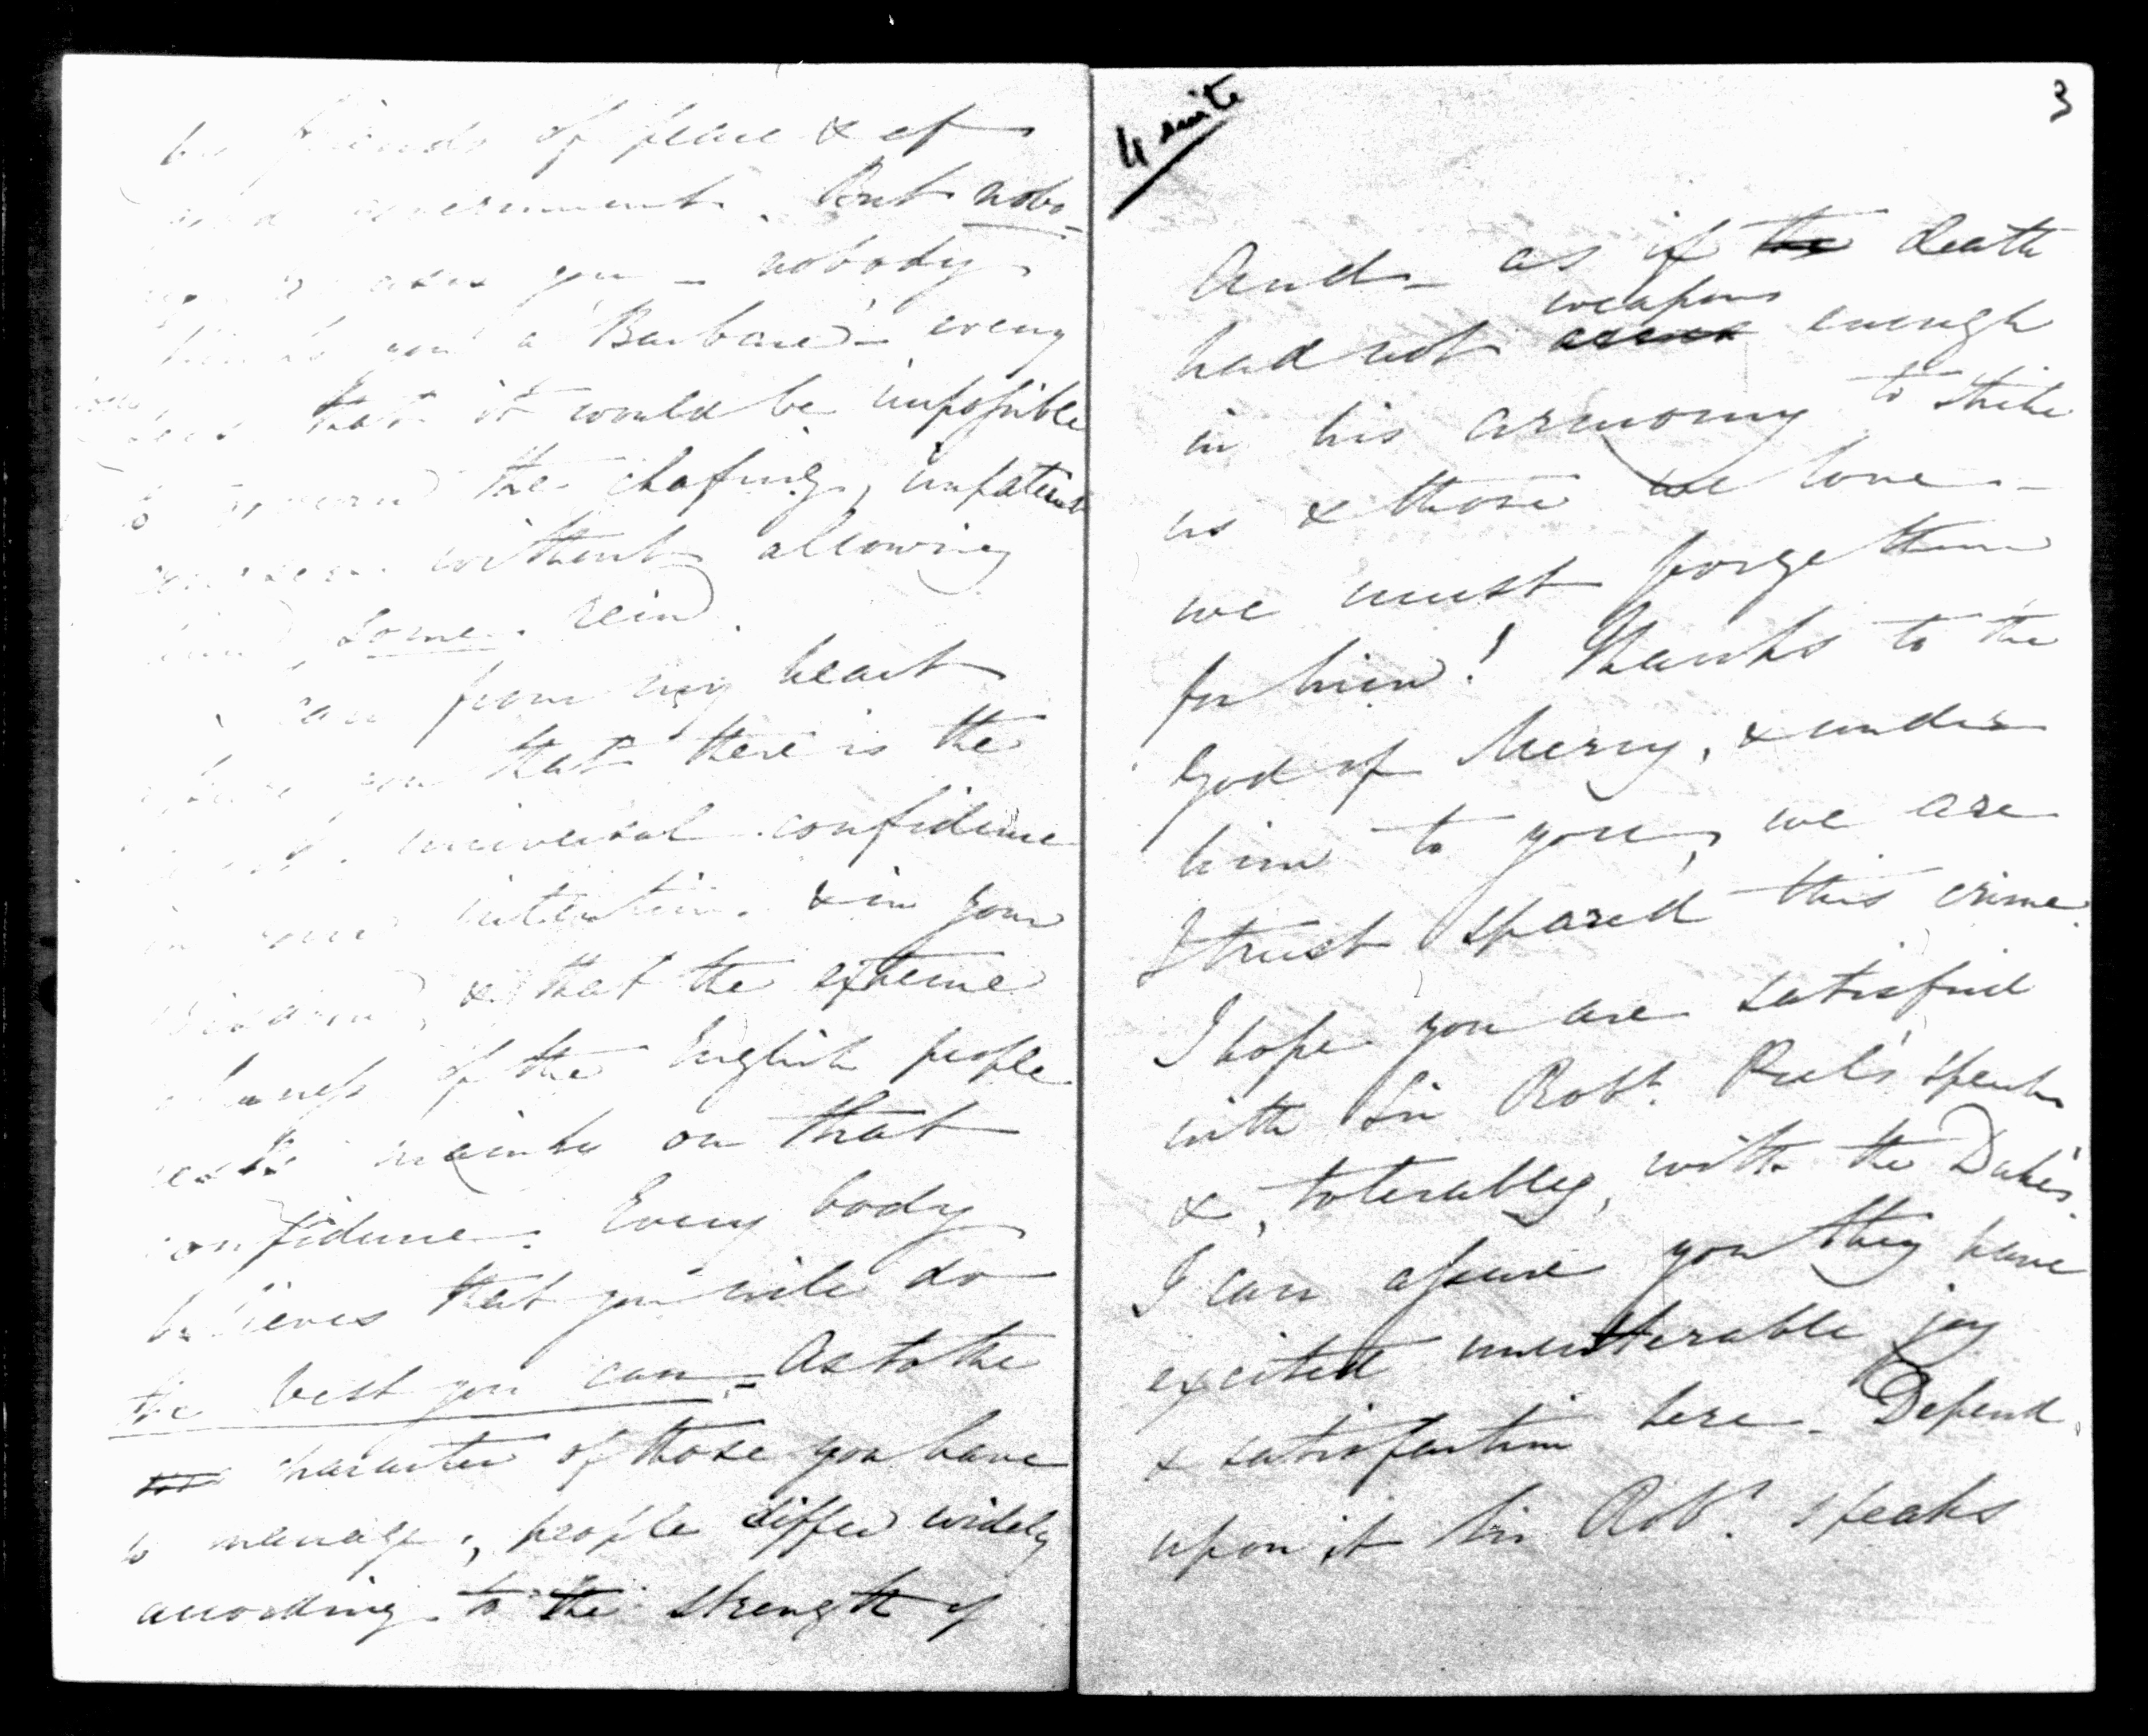 be friends of peace & of
good government. But nobo-
dy accuses you — nobody
thinks you a "Barbare" — every
body sees that it would be impossible
to govern the chafing, impatient
without allowing
him some rein.
I can from my heart
assure you that there is the
most universal confidence
in your intention. & in your
wisdom, & that the extreme
of the English people
rests mainly on that
confidence. Every body
believes that you will do
the best you can. — As to the
character of those you have
to manage, people differ widely
according to the strength of
4 suite
3
And — as if the death
had not weapons enough
in his armoury to strike
us & those we love —
we must forge them
for him! Thanks to the
God of Mercy, & under
him to you, we are
I trust spared this crime.
I hope you are satisfied
with Sir Robt. Peel's speech
& , tolerably, with the Duke's.
I can assure you they have
excited unutterable joy
& satisfaction here. Depend
upon it Sir Robt. speaks